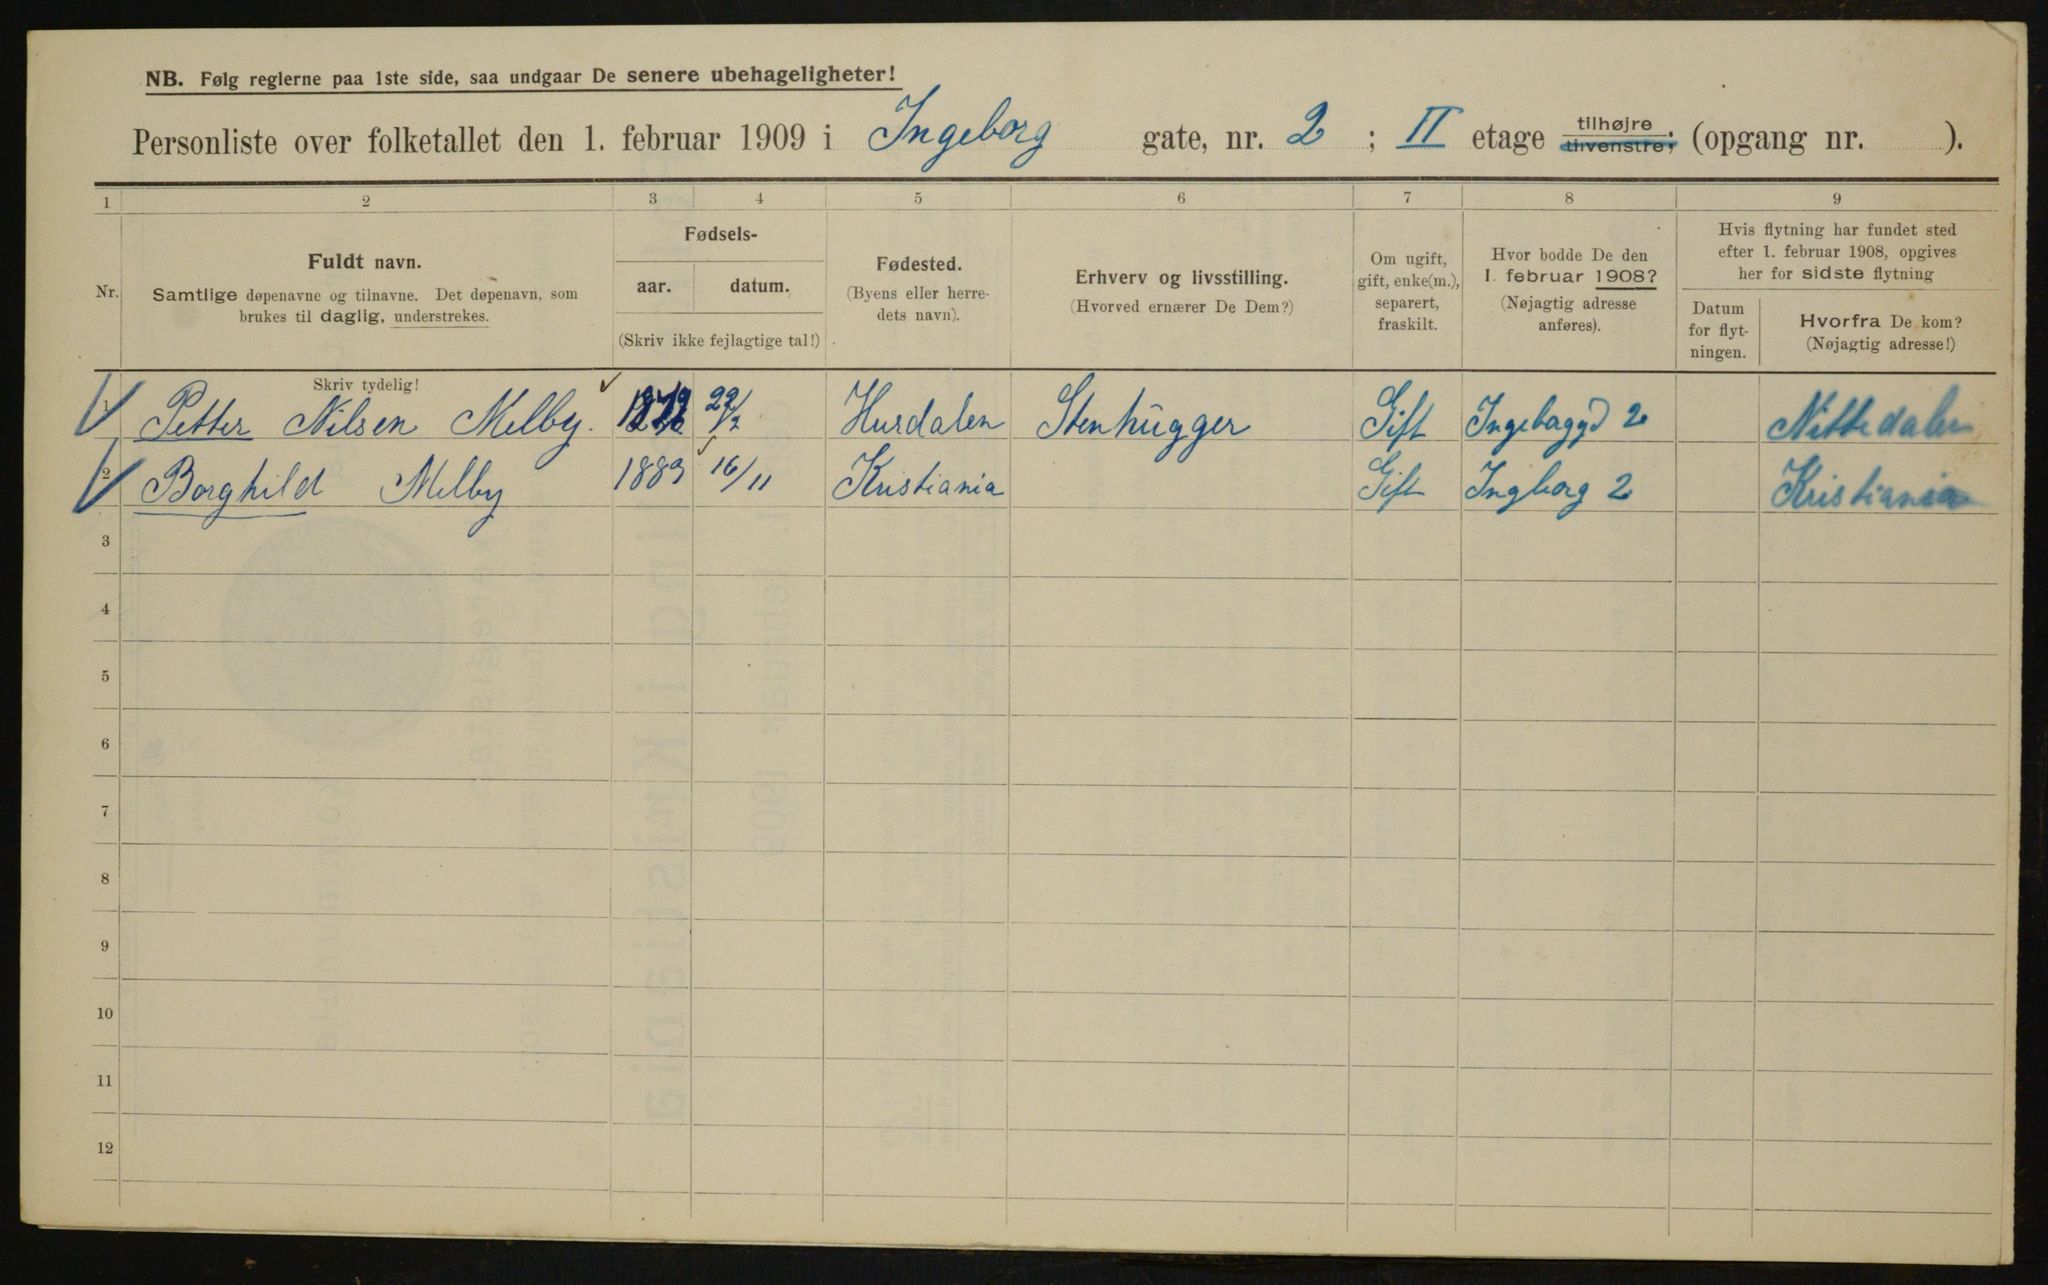 NB. Følg reglerne paa 1ste side, saa undgaar De senere ubehageligheter!
Personliste over folketallet den 1. februar 1909 i Ingeborg gate, nr. 2 ; II etage tilhøjre tilvenstre; (opgang nr. ).
1 2 3 4 5 6 7 8 9
Nr.
Fuldt navn.
Samtlige døpenavne og tilnavne. Det døpenavn, som
brukes til daglig, understrekes.
Fødsels-
aar. datum.
(Skriv ikke fejlagtige tal!)
Fødested.
(Byens eller herre-
dets navn).
Erhverv og livsstilling.
(Hvorved ernærer De Dem?)
Om ugift,
gift, enke(m.),
separert,
fraskilt.
Hvor bodde De den
1. februar 1908?
(Nøjagtig adresse
anføres).
Hvis flytning har fundet sted
efter 1. februar 1908, opgives
her for sidste flytning
Datum
for flyt-
ningen.
Hvorfra De kom?
(Nøjagtig adresse!)
Skriv tydelig!
1 Petter Nilsen Melby. 22/2 Hurdalen Stenhugger Gift 2 Nittedalen
2 Borghild Melby 1883 16/11 Kristiania Gift Ingborg 2 Kristiania
3
4
5
6
7
8
9
10
11
12